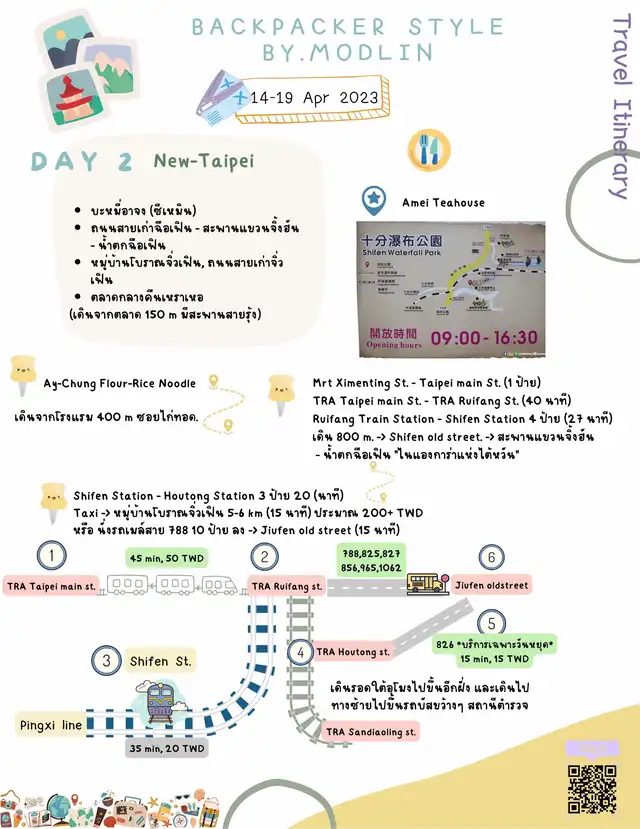 BACKPACKER STYLE
BY.MODLIN
Travel Itinerary
14-19 Apr 2023
DAY 2 New-Taipei
• บะหมี่อาจง (ซีเหมิน)
• ถนนสายเก่าฉือเฟิน - สะพานแขวนจิ้งฮัน
- น้ำตกฉือเฟิน
• หมู่บ้านโบราณจิ่วเฟิน, ถนนสายเก่าจิ่ว
เฟิน
• ตลาดกลางคืนเหราเหอ
(เดินจากตลาด 150 m มีสะพานสายรุ้ง)
Amei Teahouse
十分瀑布公園
Shifen Waterfall Park
開放時間
Opening hours
09:00 - 16:30
Ay-Chung Flour-Rice Noodle
เดินจากโรงแรม 400 m ซอยไก่ทอด.
Mrt Ximenting St. - Taipei main St. (1 ป้าย)
TRA Taipei main St. - TRA Ruifang St. (40 นาที)
Ruifang Train Station - Shifen Station 4 ป้าย (27 นาที)
เดิน 800 m. -> Shifen old street. -> สะพานแขวนจิ้งฮัน
- น้ำตกฉือเฟิน "ไนแองการ่าแห่งไต้หวัน"
Shifen Station - Houtong Station 3 ป้าย 20 (นาที)
Taxi -> หมู่บ้านโบราณจิ่วเฟิน 5-6 km (15 นาที) ประมาณ 200+ TWD
หรือ นั่งรถเมล์สาย 788 10 ป้าย ลง -> Jiufen old street (15 นาที)
1
45 min, 50 TWD
2
788,825,827
856,965,1062
6
TRA Taipei main st.
TRA Ruifang st.
Jiufen oldstreet
5
826 *บริการเฉพาะวันหยุด*
15 min, 15 TWD
4
TRA Houtong st.
3
Shifen St.
เดินรอดใต้อุโมงไปขึ้นอีกฝั่ง และเดินไป
ทางซ้ายไปขึ้นรถบัสขวางๆ สถานีตำรวจ
Pingxi line
35 min, 20 TWD
TRA Sandiaoling st.